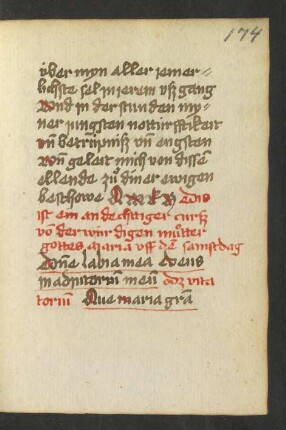 174
über myn aller jemer=
lichste sel in jerem vsz gang
Vnd in der stunden my=
ner jungsten notturfftikeit
vn̄ betrupnisz vn̄ engsten
Von geleit mich von dissē
ellende zů diner ewigen
beschowe A M E N
ist ein andechtiger cursz
vō der wirdigen můtter
gottes maria vff dē samstdag
Dn̄e labia mea Deus
in adiutoriū meū
toriū Aue maria grā